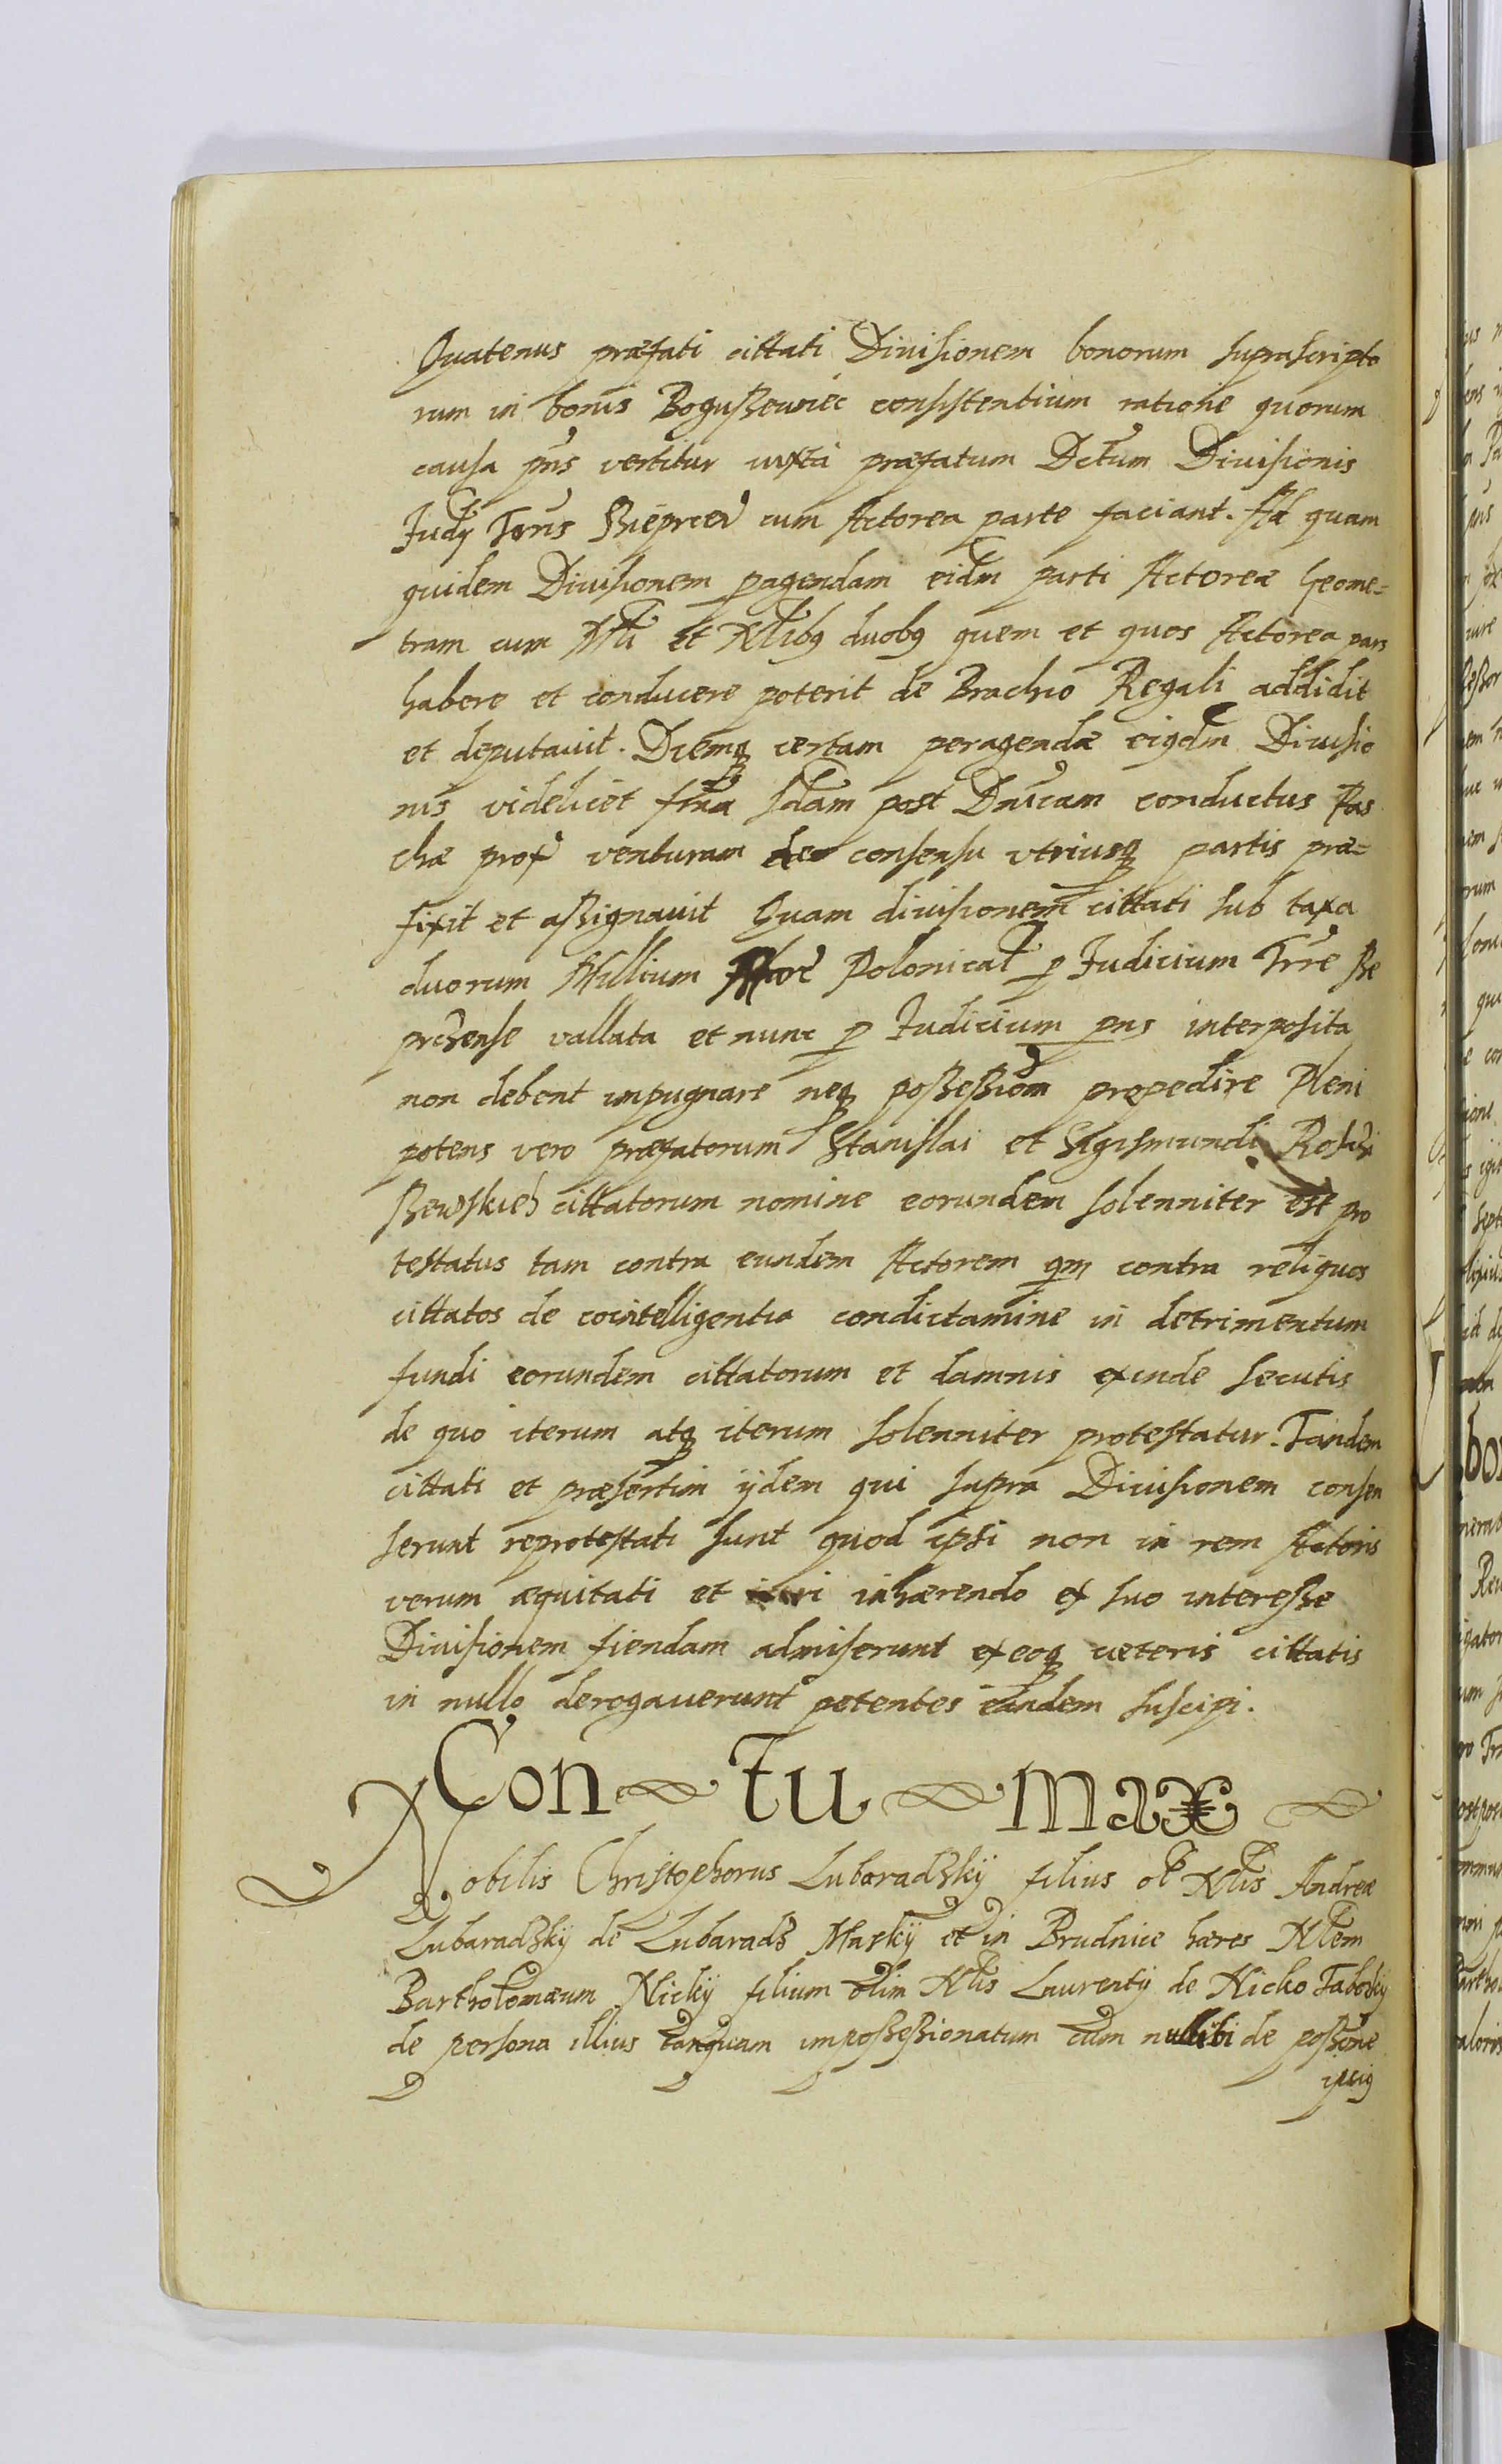 Quatenus præfati cittati Diuisionem bonorum suprascripto
rum in bonis Bogußewiec consistentium ratione quorum
causa pns vertitur iuxta præfatum Dctum Diuisionis
Judy Trris cum Actorea parte faciant. Ad quam
quidem Diuisionem pagendam eidm parti Actoreæ Geome=
tram cum Mli et Nlibq duobq quem et quos Actorea pars
habere et conducere poterit de Brachio Regali addidit
et deputauit. Diemq certam peragendæ eiqdm Diuisio
nis videlicet fria Sdam post Dnicam conductus Pas
chæ prox venturam de consensu vtriusq partis præ=
fixit et aßignauit Quam diuisionem cittati sub taxa
duorum Millium Polonical p Judicium Trre
vallata et nunc p Judicium pns interposita
non debent impugnare neq poßeßiom præpedire Pleni
potens vero præfatorum Stanislai et Sigismundi
cittatorum nomine eorundem solenniter est pro
testatus tam contra eundem Actorem qm contra reliquos
cittatos de cointelligentia condictamine in detrimentum
fundi eorundem cittatorum et damnis exinde secutis
de quo iterum atq iterum solenniter protestatur. Tandem
cittati et præsertim ijdem qui supra Diuisionem consen
serunt reprotestati sunt quod ipsi non in rem Actoris
verum æquitati et iuri inhærendo ex suo intereße
Diuisionem fiendam admiserunt exeoq cæteris cittatis
in nullo derogauerunt petentes eandem suscipi.
Con tu max
Nobilis Christophorus Lubaradßkij filius ol Nlis Andreæ
Lubaradßkij de Lubaradß Maskij et in Brudnice hæres Nlem
Bartholomæum Nickij filium olim Nlis Laurentij de Nicko Taboßkij
de persona illius tanquam impoßeßionatum cum nullibi de poßone
ipsiq